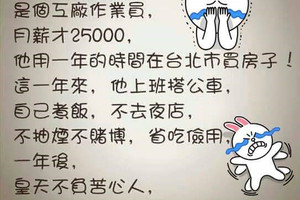 是個工廠作業員，
月薪才25000，
他用一年的時間在台北市買房子！
這一年來，他上班搭公車，
自己煮飯，不去夜店，
不抽煙不賭博，省吃儉用，
一年後，
皇天不負苦心人，